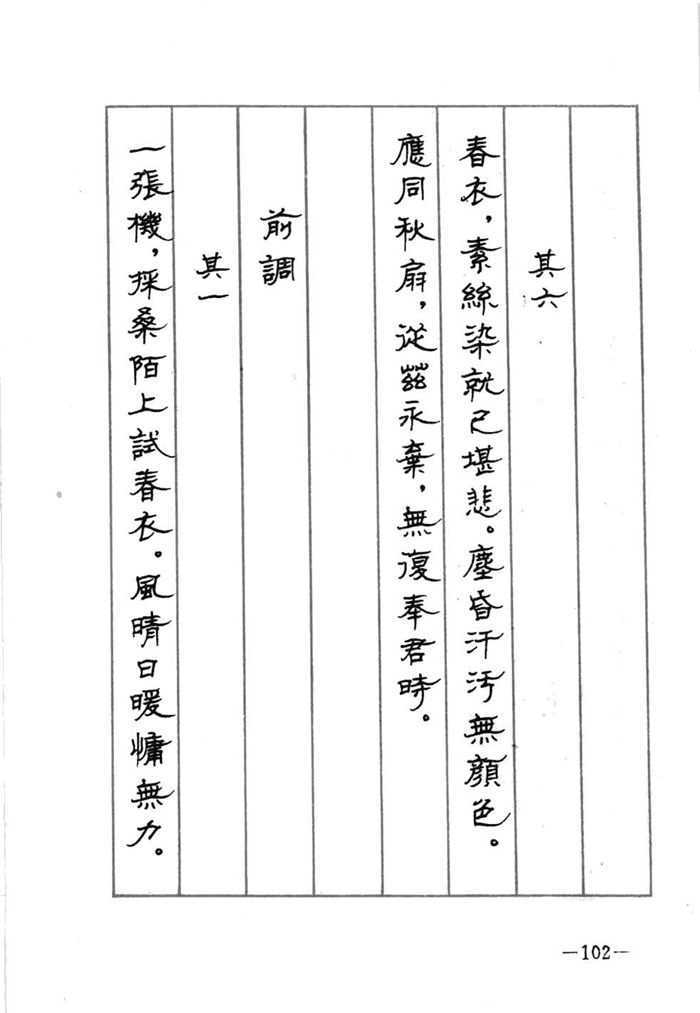 其六
春衣，素絲染就已堪悲。塵昏汗汚無顔色。
應同秋扇，從茲永棄，無復奉君時。
前調
其一
一張機，採桑陌上試春衣。風晴日暖慵無力。
—102—